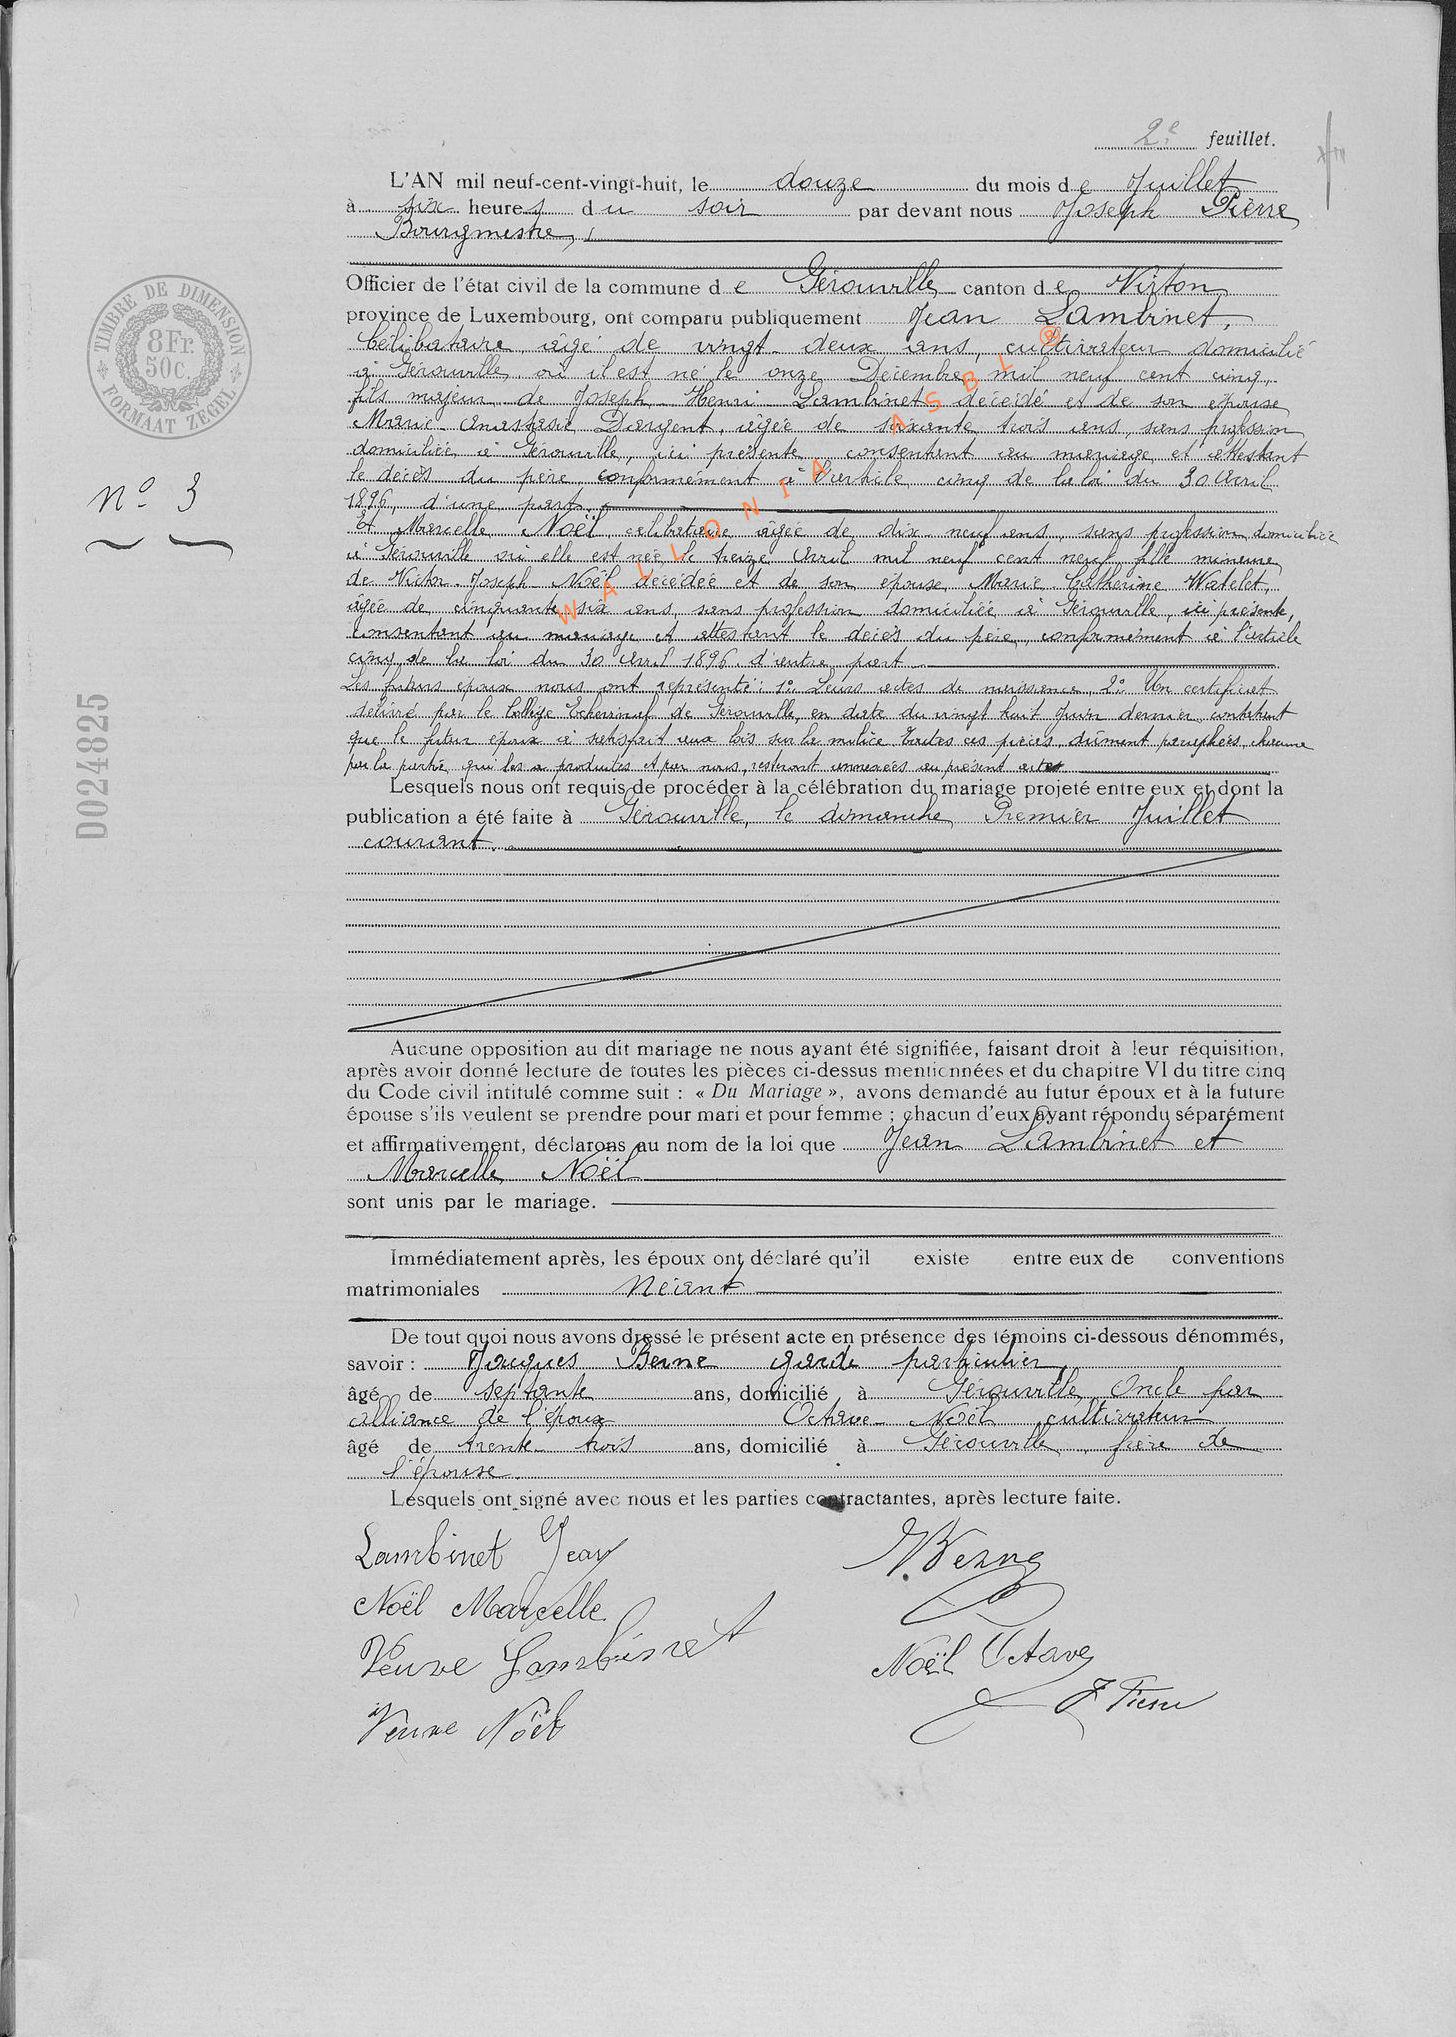 2e feuillet.
L'AN mil neuf-cent-vingt-huit, le douze du mois de Juillet
à six heures du soir par devant nous Joseph Pierre
Bourgmestre,
Officier de l'état civil de la commune de Gérouville canton de Virton
province de Luxembourg, ont comparu publiquement Jean Lambinet,
Célibataire âgé de vingt-deux ans, cultivateur domicilié
à Gérouville où il est né le onze Décembre mil neuf cent cinq,
fils majeur de Joseph-Henri Lambinet décédé et de son épouse
Marie-Anastasie Dargent, âgée de soixante trois ans, sans profession
domiciliée à Gérouville, ici présente, consentant au mariage et attestant
le décès du père, conformément à l'article cinq de la loi du 30 Avril
1896, d'une part.
Et Marcelle Noël célibataire âgée de dix-neuf ans, sans profession domiciliée
à Gérouville où elle est née le treize Avril mil neuf cent neuf fille mineure
de Victor-Joseph Noël décédée et de son épouse Marie Catherine Watelet,
âgée de cinquante six ans, sans profession domiciliée à Gérouville, ici présente,
consentant au mariage et attestant le décès du père, conformément à l'article
cinq de la loi du 30 Avril 1896 d'autre part
Les futurs époux nous ont représenté : 1° Leurs actes de naissance, 2° Un certificat
délivré par le Collège Echevinal de Gérouville, en date du vingt huit Juin dernier constatant
que le futur époux a satisfait aux lois sur la milice. Toutes ces pièces, dûment paraphées chacune
par la partie qui les a produites et par nous, resteront annexées au présent acte
Lesquels nous ont requis de procéder à la célébration du mariage projeté entre eux et dont la
publication a été faite à Gérouville, le dimanche Premier Juillet
courant.
Aucune opposition au dit mariage ne nous ayant été signifiée, faisant droit à leur réquisition,
après avoir donné lecture de toutes les pièces ci-dessus mentionnées et du chapitre VI du titre cinq
du Code civil intitulé comme suit : « Du Mariage », avons demandé au futur époux et à la future
épouse s'ils veulent se prendre pour mari et pour femme ; chacun d'eux ayant répondu séparément
et affirmativement, déclarons au nom de la loi que Jean Lambinet et
Marcelle Noël
sont unis par le mariage.
Immédiatement après, les époux ont déclaré qu'il existe entre eux de conventions
matrimoniales Néant
De tout quoi nous avons dressé le présent acte en présence des témoins ci-dessous dénommés,
savoir : Jacques Berne garde particulier
âgé de septante ans, domicilié à Gérouville, Oncle par
alliance de l'époux Octave Noël cultivateur
âgé de trente-trois ans, domicilié à Gérouville, frère de
l'épouse.
Lesquels ont signé avec nous et les parties contractantes, après lecture faite.
Lambinet Jean
Noël Marcelle
Veuve Lambinet
Veuve Noël
Noël Octave
J Pierre
TIMBRE DE DIMENSION
8 Fr.
50 c.
FORMAAT ZEGEL
n° 3
D024825
WALLONIA ASBL ®